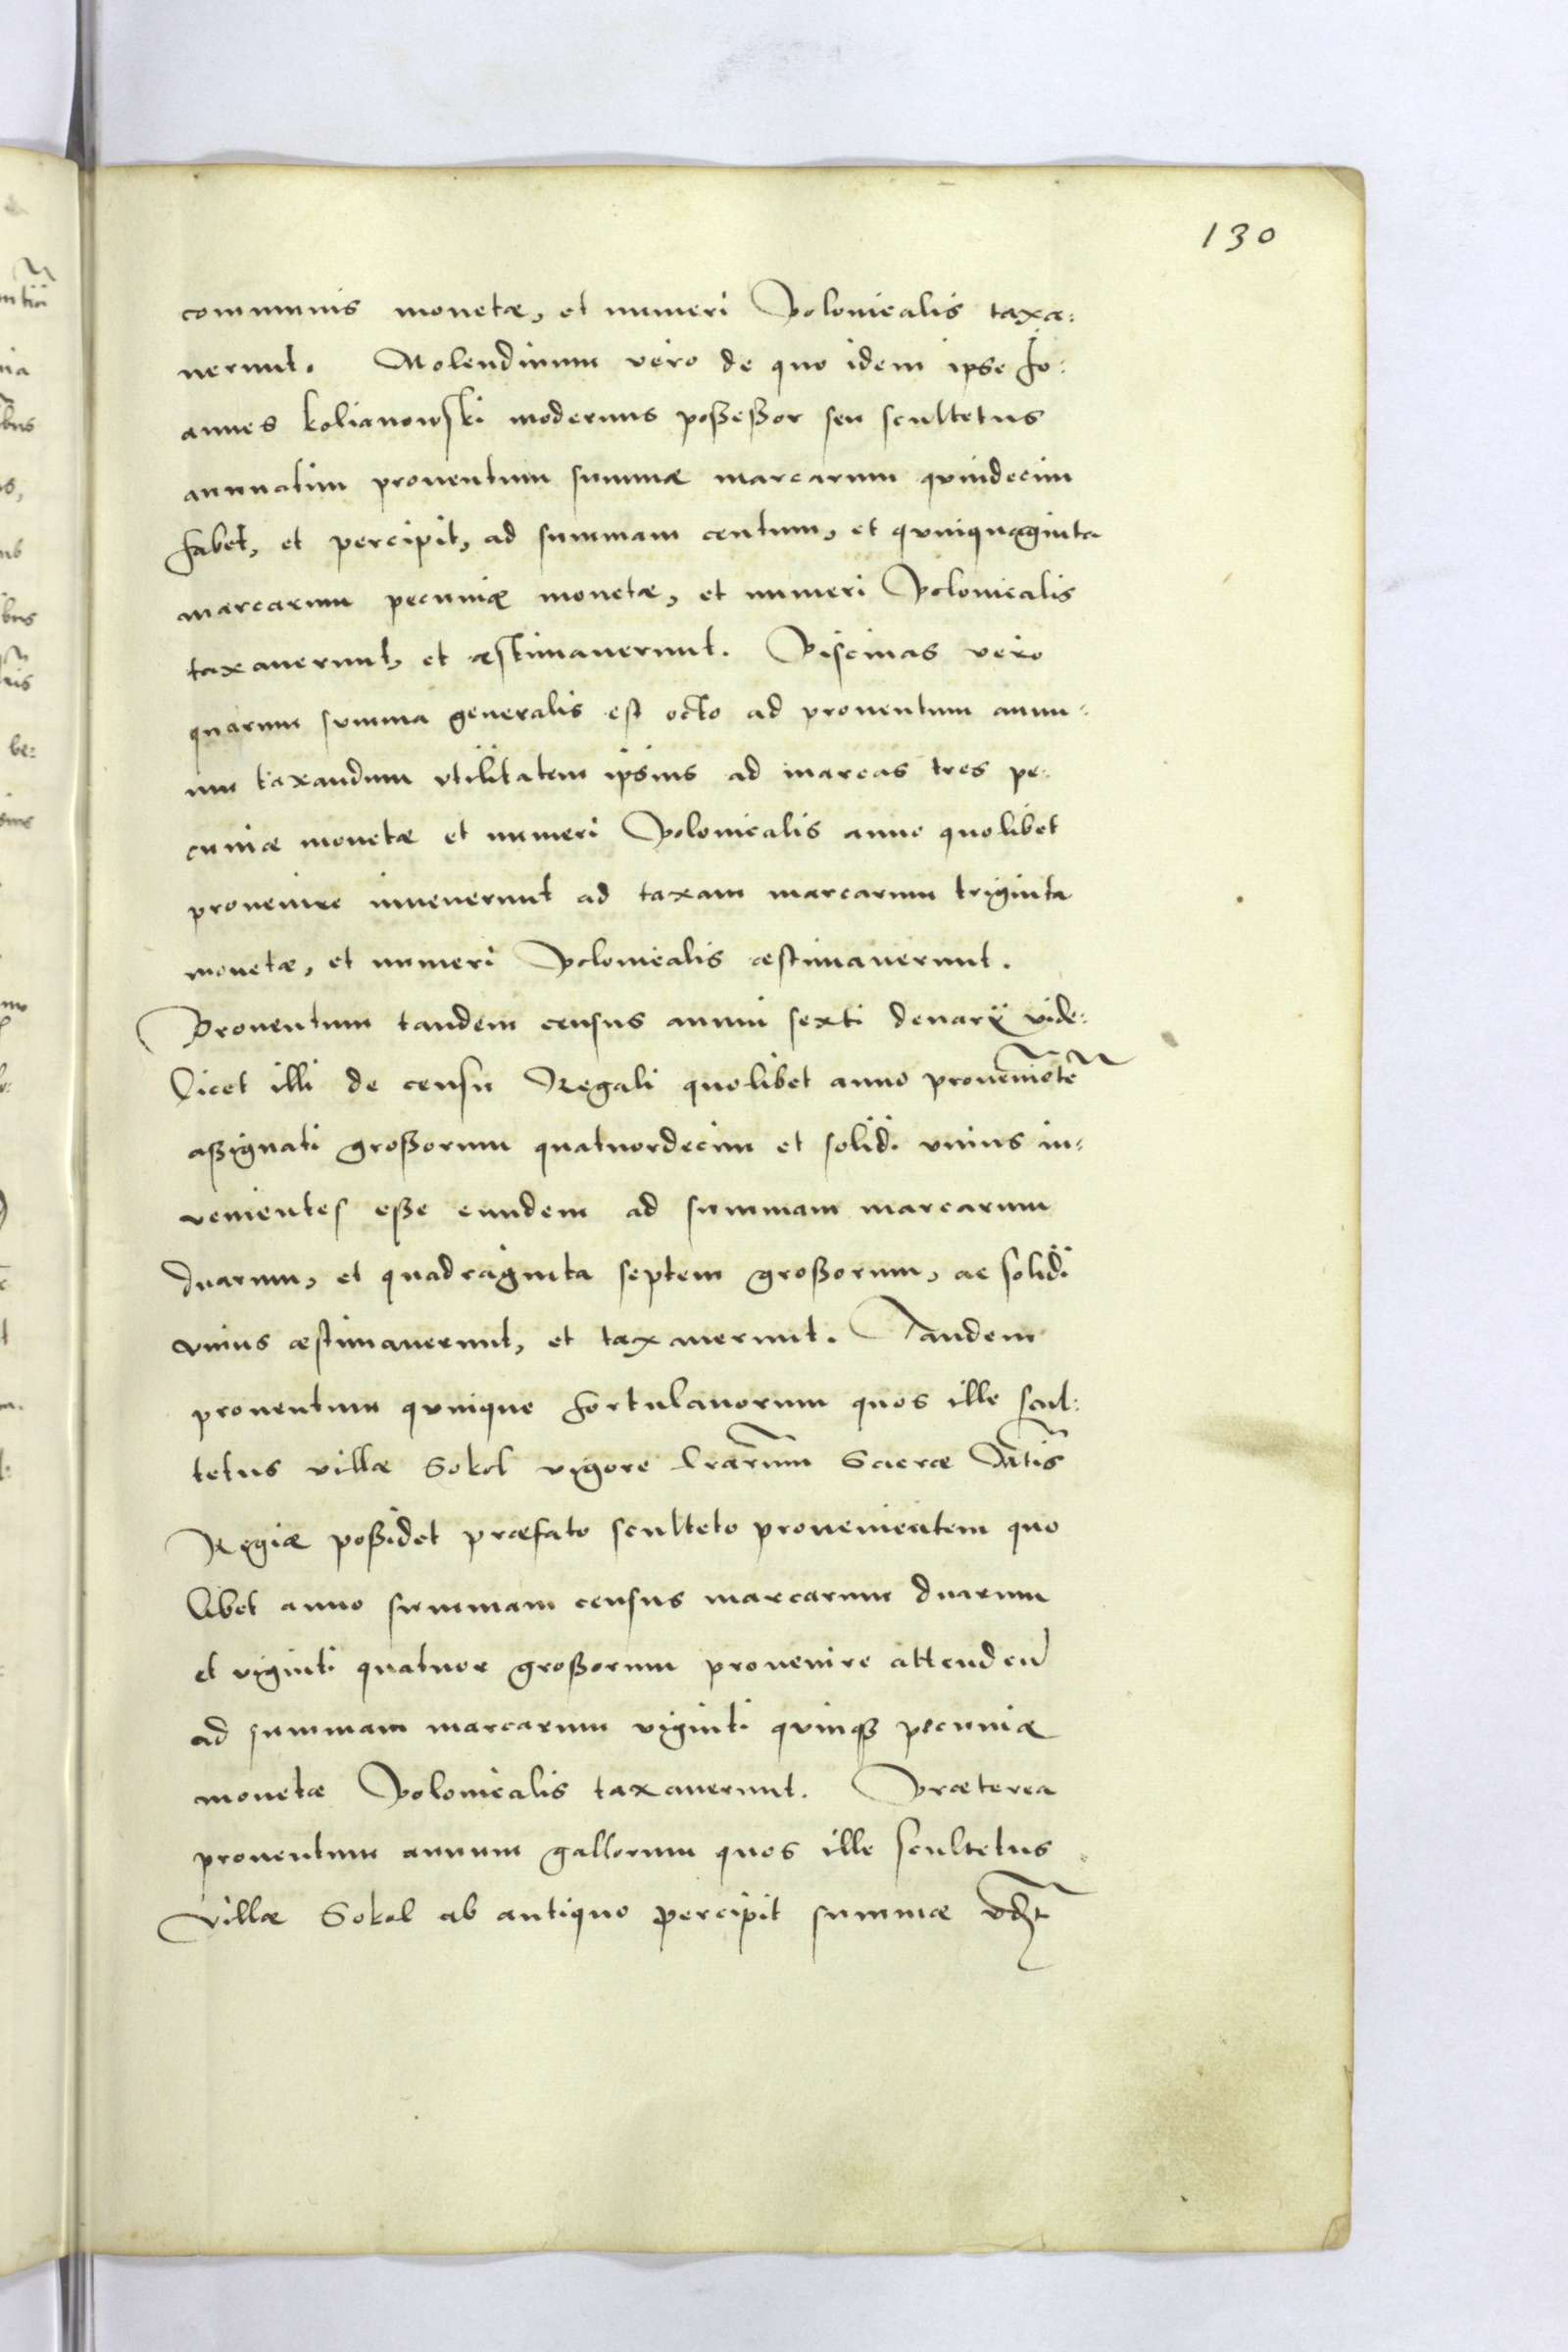 130
communis monetæ, et numeri Polonicalis taxa:
uerunt. Molendinum vero de quo idem ipse Jo:
annes Kolianowski modernus poßeßor seu scultetus
annuatim prouentum summæ marcarum quindecim
habet, et percipit, ad summam centum, et quinquaginta
marcarum pecuniæ monetæ, et numeri Polonicalis
taxauerunt, et æstimauerunt. Piscinas vero
quarum summa generalis est octo ad prouentum annu:
um taxandum vtilitatem ipsius ad marcas tres pe:
cuniæ monetæ et numeri Polonicalis anno quolibet
prouenire inuenerunt ad taxam marcarum triginta
monetæ, et numeri Polonicalis æstimauerunt.
Prouentum tandem census annui sexti denarij vide:
licet illi de censu Regali quolibet anno proueniente
aßignati großorum quatuordecim et solidi vnius in:
uenientes eße eundem ad summam marcarum
duarum, et quadraginta septem großorum, ac solidi
vnius æstimauerunt, et taxauerunt. Tandem
prouentum quinque hortulanorum quos ille scul:
tetus villæ Sokol vigore lrarum Sacræ Mtis
Regiæ poßidet præfato sculteto prouenientem quo
libet anno summam census marcarum duarum
et viginti quatuor großorum prouenire attenden
ad summam marcarum viginti quinq3 pecuniæ
monetæ Polonicalis taxauerunt. Præterea
prouentum annuum gallorum quos ille scultetus
villæ Sokol ab antiquo percipit summæ vdz